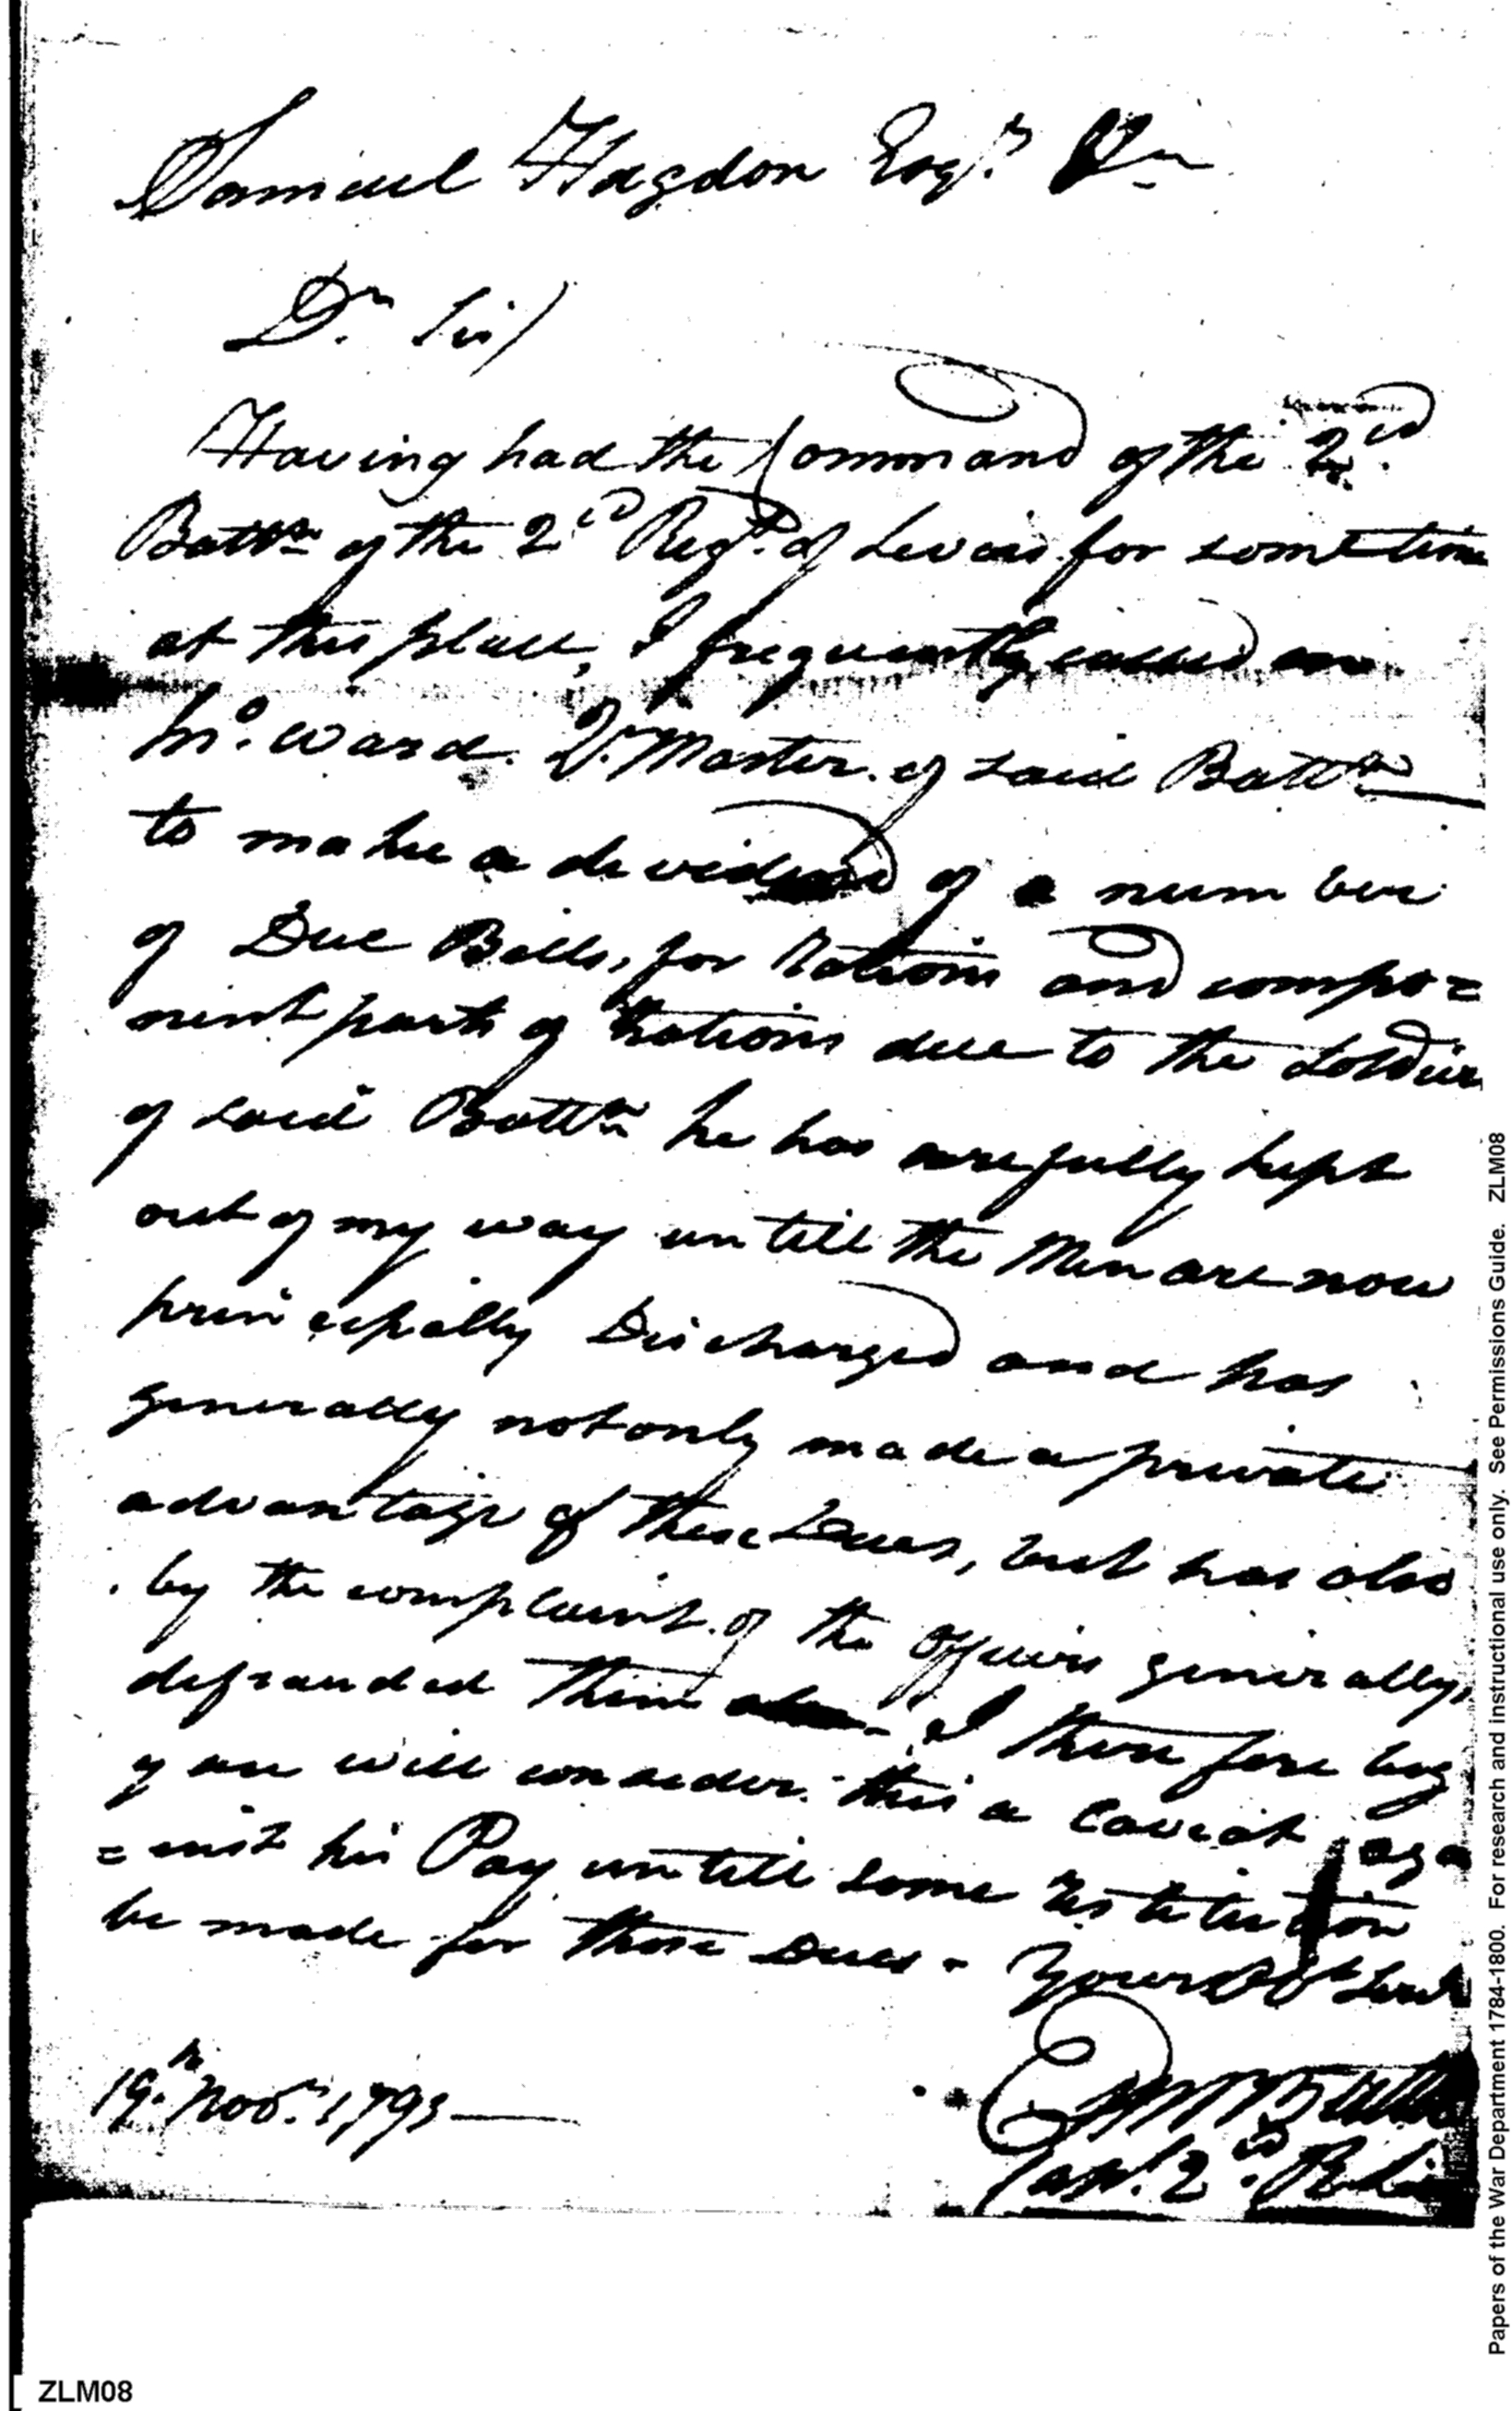 Samuel Hagdon Esqr. Qm
Dr. Sir/
Having had the Command of the 2d.
Battn of the 2d Regt. of Levies for some time
at this place, I frequently called on
Mr. Ward. Q. Master. of said Battn
to make a devidend of a number
of Due Bills, for Rations and compo=
nent parts of Rations due to the Soldier
of said Battn he has carefully kept
out of my way untill the Men are now
principally Discharged and has
generally not only made a private
advantage of these Dues, but has also
by the complaint of the officers generally,
defrauded them I therefore beg
you will consider this a Caveat aga
=inst his Pay untill some restitution
be made for those Dues - Your Obt Servt
19th. Novr. 1791
Edwd Butler
Capt. 2d.
Papers of the War Department 1784-1800. For research and instructional use only. See Permissions Guide. ZLM08
ZLM08